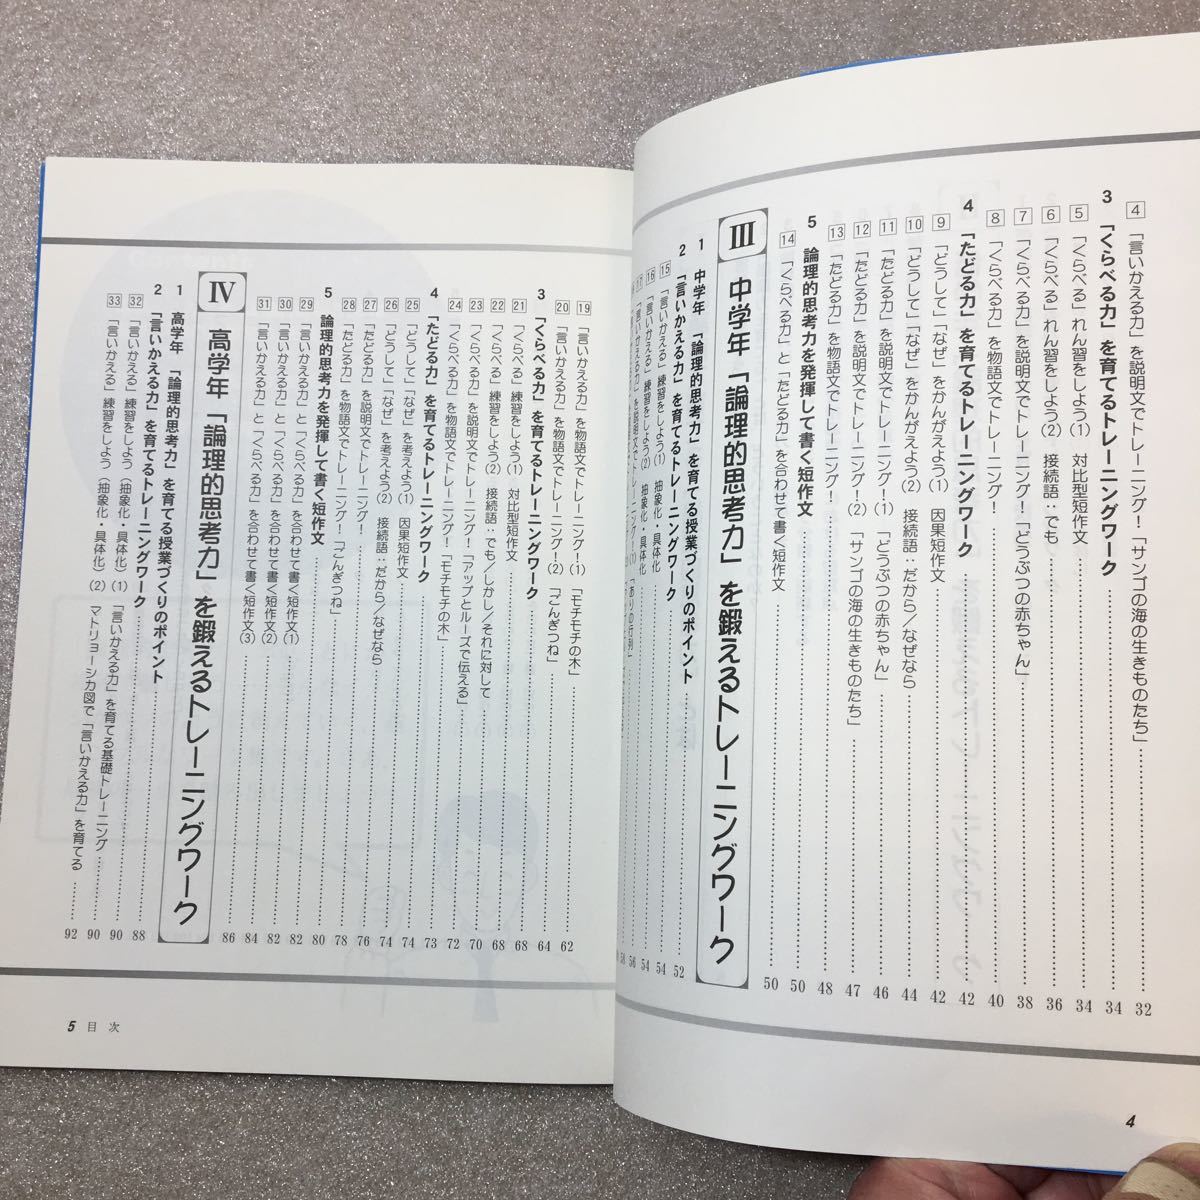 4 「言いかえる力」を説明文でトレーニング！「サンゴの海の生きものたち」 32
3 「くらべる力」を育てるトレーニングワーク 34
5 「くらべる」れん習をしよう(1) 対比型短作文 34
6 「くらべる」れん習をしよう(2) 接続語：でも 36
7 「くらべる力」を説明文でトレーニング！「どうぶつの赤ちゃん」 38
8 「くらべる力」を物語文でトレーニング！ 40
4 「たどる力」を育てるトレーニングワーク 42
9 「どうして」「なぜ」をかんがえよう(1) 因果短作文 42
10 「どうして」「なぜ」をかんがえよう(2) 接続語：だから／なぜなら 44
11 「たどる力」を説明文でトレーニング！(1) 「どうぶつの赤ちゃん」 46
12 「たどる力」を説明文でトレーニング！(2) 「サンゴの海の生きものたち」 47
13 「たどる力」を物語文でトレーニング！ 48
5 論理的思考力を発揮して書く短作文 50
14 「くらべる力」と「たどる力」を合わせて書く短作文 50
Ⅲ 中学年「論理的思考力」を鍛えるトレーニングワーク
1 中学年 「論理的思考力」を育てる授業づくりのポイント 52
2 「言いかえる力」を育てるトレーニングワーク 54
15 「言いかえる」練習をしよう(1) 抽象化・具体化 54
16 「言いかえる」練習をしよう(2) 抽象化・具体化 56
17 「言いかえる力」を説明文でトレーニング！(1) 「ありの行列」 58
19 「言いかえる力」を物語文でトレーニング！(1) 「モチモチの木」 62
20 「言いかえる力」を物語文でトレーニング！(2) 「ごんぎつね」 64
3 「くらべる力」を育てるトレーニングワーク 68
21 「くらべる」練習をしよう(1) 対比型短作文 68
22 「くらべる」練習をしよう(2) 接続語：でも／しかし／それに対して 70
23 「くらべる力」を説明文でトレーニング！「アップとルーズで伝える」 72
24 「くらべる力」を物語文でトレーニング！「モチモチの木」 73
4 「たどる力」を育てるトレーニングワーク 74
25 「どうして」「なぜ」を考えよう(1) 因果短作文 74
26 「どうして」「なぜ」を考えよう(2) 接続語：だから／なぜなら 76
27 「たどる力」を説明文でトレーニング！ 78
28 「たどる力」を物語文でトレーニング！「ごんぎつね」 80
5 論理的思考力を発揮して書く短作文 82
29 「言いかえる力」と「くらべる力」を合わせて書く短作文(1) 82
30 「言いかえる力」と「くらべる力」を合わせて書く短作文(2) 84
31 「言いかえる力」と「くらべる力」を合わせて書く短作文(3) 86
Ⅳ 高学年「論理的思考力」を鍛えるトレーニングワーク
1 高学年 「論理的思考力」を育てる授業づくりのポイント 88
2 「言いかえる力」を育てるトレーニングワーク 90
32 「言いかえる」練習をしよう（抽象化・具体化）(1) 「言いかえる力」を育てる基礎トレーニング 90
33 「言いかえる」練習をしよう（抽象化・具体化）(2) マトリョーシカ図で「言いかえる力」を育てる 92
4
5 目 次